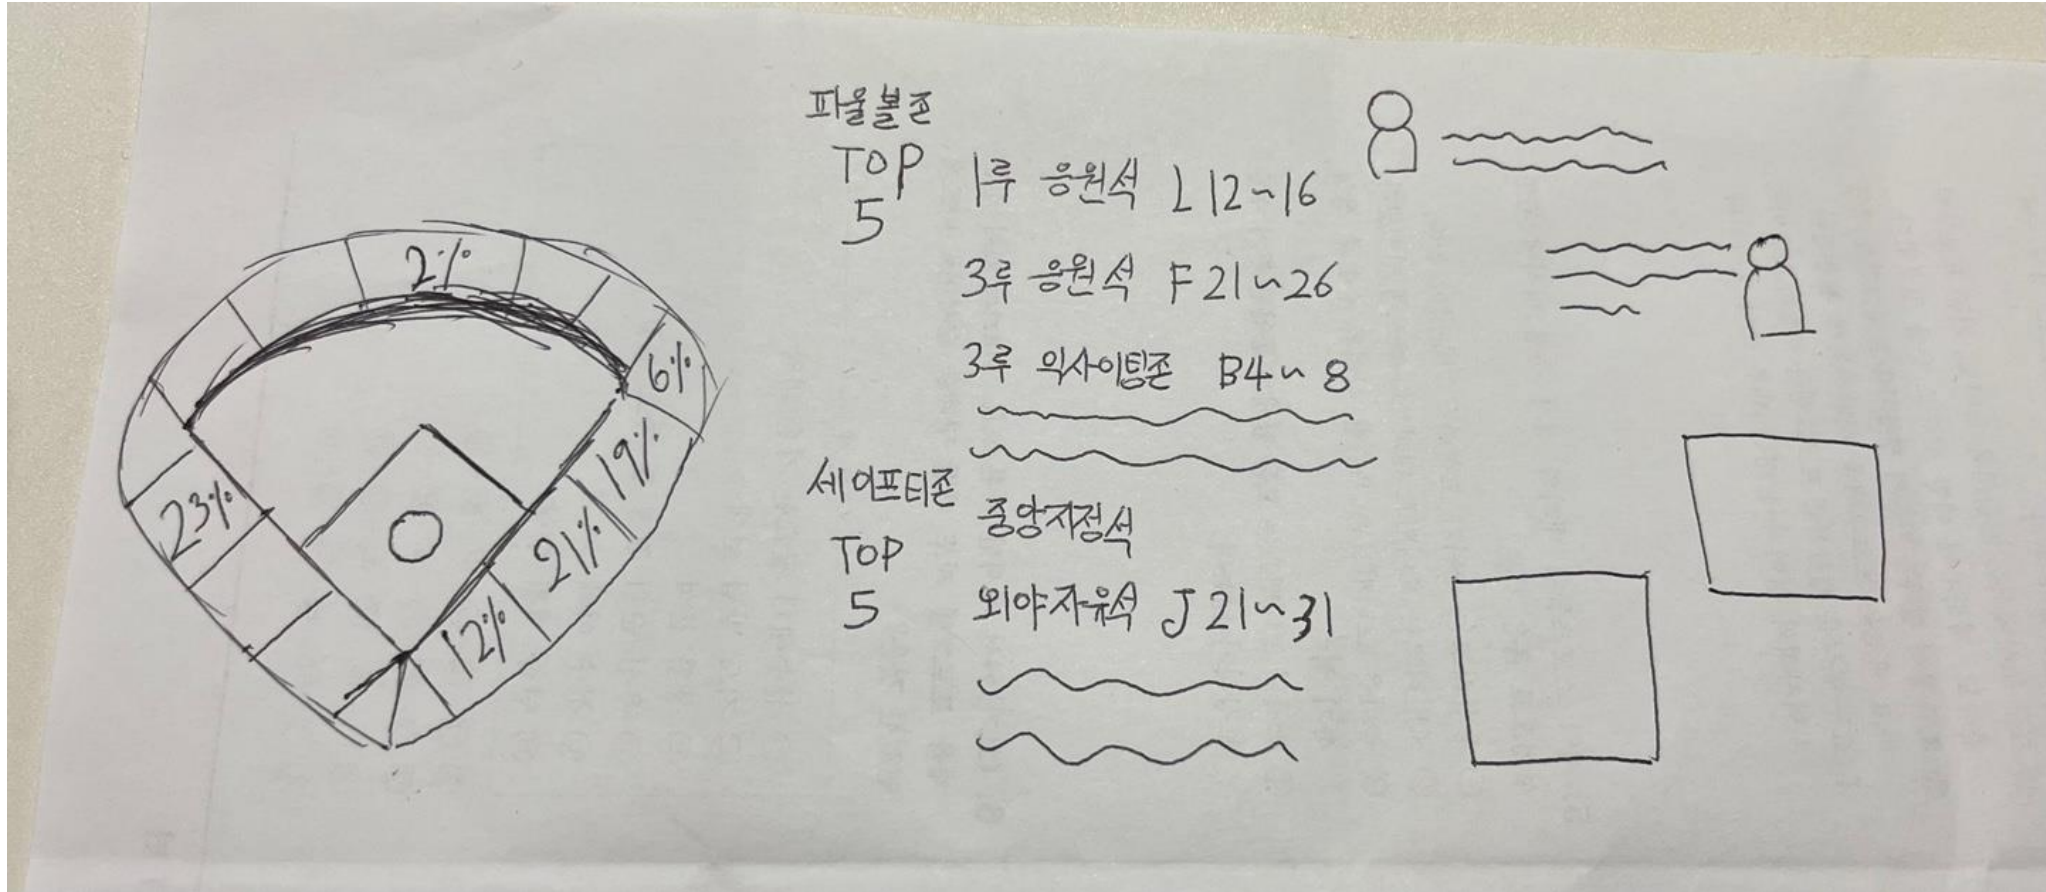 2%
6%
19%
23%
21%
12%
파울볼존
TOP
5
1루 응원석 L 12~16
3루 응원석 F 21~26
3루 익사이팅존 B4~8
세이프티존
TOP
5
중앙지정석
외야자유석 J 21~31